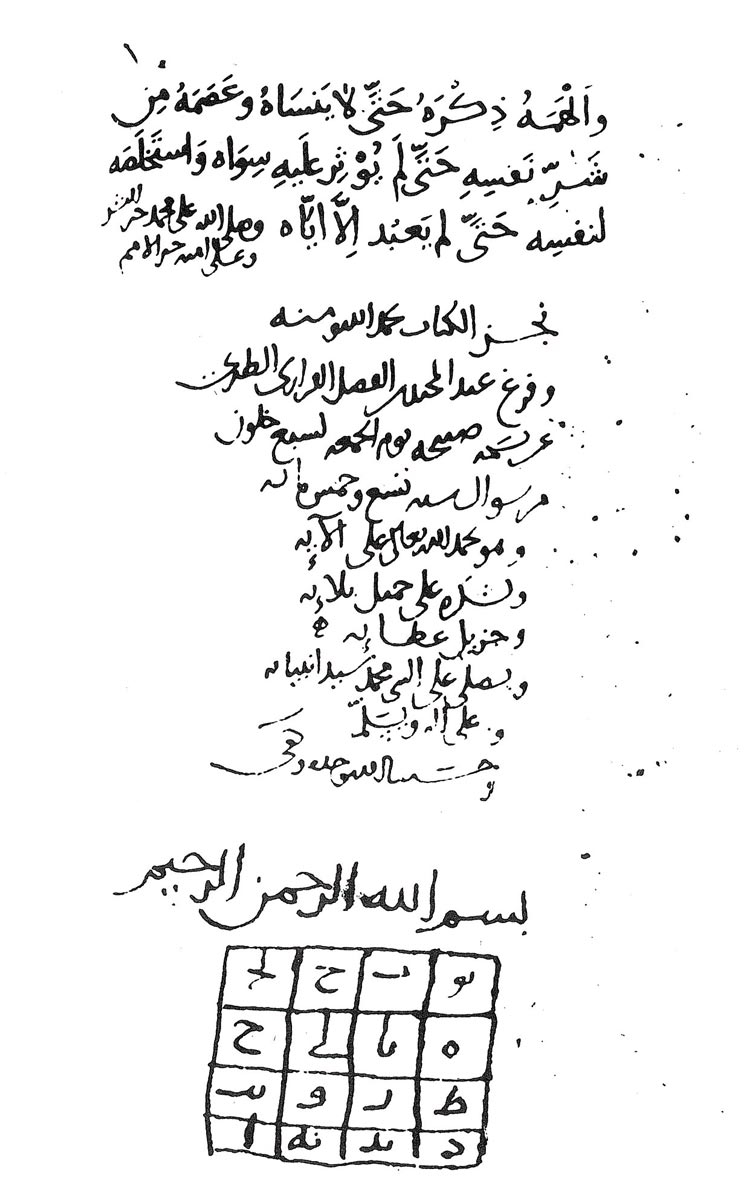 ١
وَأَلْهَمَهُ ذِكْرَهُ حَتَّى لَا يَنسَاهُ وعَصَمَهُ مِن
شَرِّ نَفسِهِ حَتَّى لَم يُؤْثِر عَلَيهِ سِوَاه وَاستَخْلَصَه
لنفسِه حَتَّى لم يَعبُد إِلَّا ايَّاه وصلى الله على محمد خير البشر
وعلى امته خير الامم
نجز الكتاب بحمد الله ومنه
وفرغ عبد المجيد بن الفضل الفراوى الطبرى
عن نسخه صبيحه يوم الجمعه لسبع خلون
من شوال سنه تسع وخمس مائه
وهو يحمد الله تعالى على آلائه
ويشكره على جميل بلائه
وجزيل عطائه
ويصلى على النبي محمد سيد انبيائه
وعلى اله ويسلّم
وحسبنا الله وحده وكفى
بسم الله الرحمن الرحيم
يو ب ج يج
ه يا ى ح
ط ز و يب
د يد يه ا